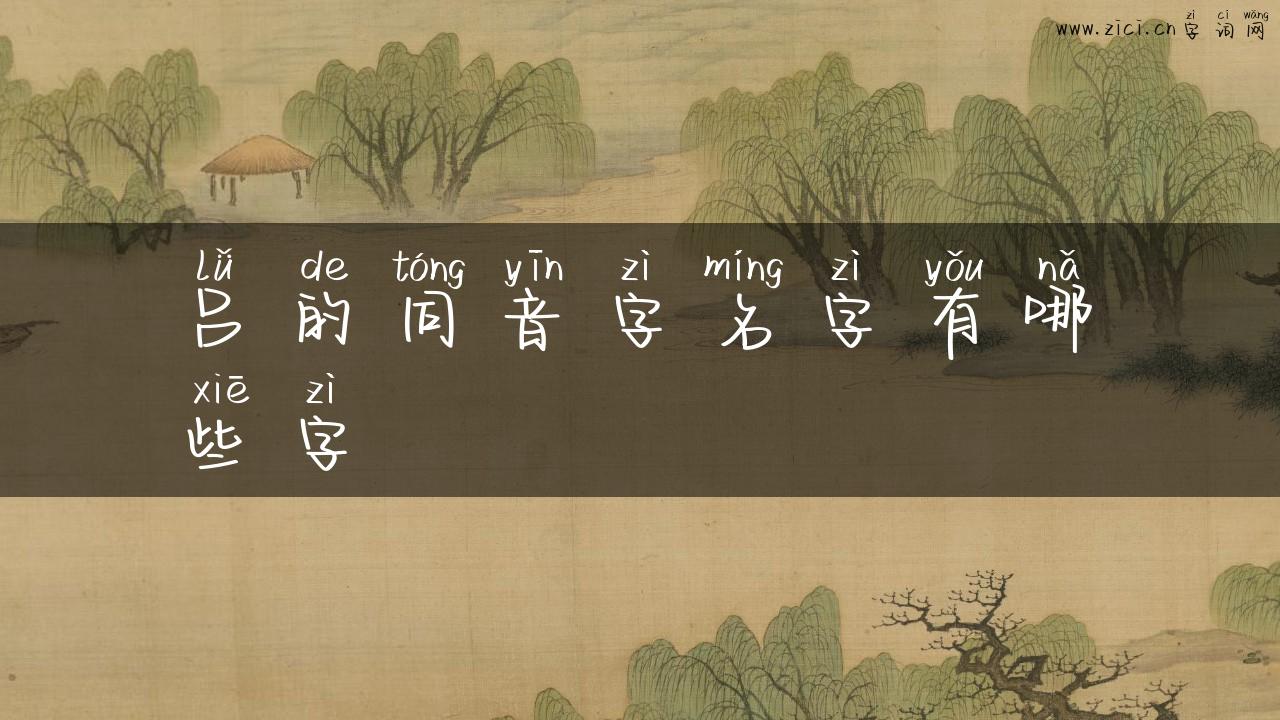 zì cí wǎng
www.zici.cn 字词网
lǚ de tóng yīn zì míng zì yǒu nǎ
吕的同音字名字有哪
xiē zì
些字